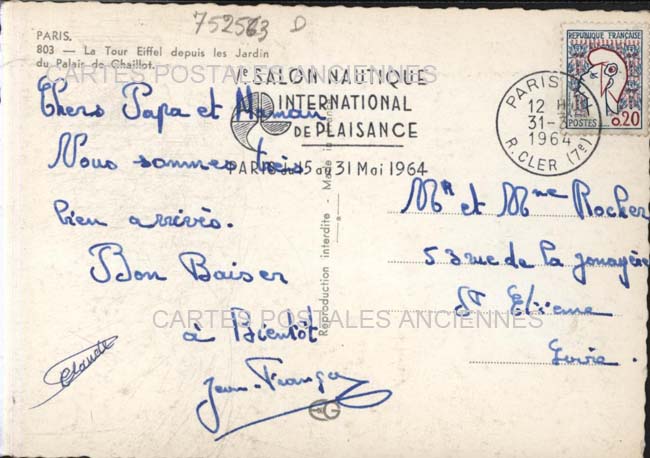 752563 D
PARIS.
803 — La Tour Eiffel depuis les Jardin
du Palais de Chaillot.
CARTES POSTALES ANCIENNES
VIe SALON NAUTIQUE
INTERNATIONAL
DE PLAISANCE
PARIS du 15 au 31 Mai 1964
PARIS
12 H
31-
1964
R. CLER (7e)
REPUBLIQUE FRANÇAISE
POSTES
0,20
Chers Papa et Maman
Nous sommes très
bien arrivés.
Bon Baiser
à Bientôt
Jean-François
Claude
Reproduction interdite - Made in
Mr et Mme Rocher
53 rue de la
St Etienne
Loire.
CARTES POSTALES ANCIENNES